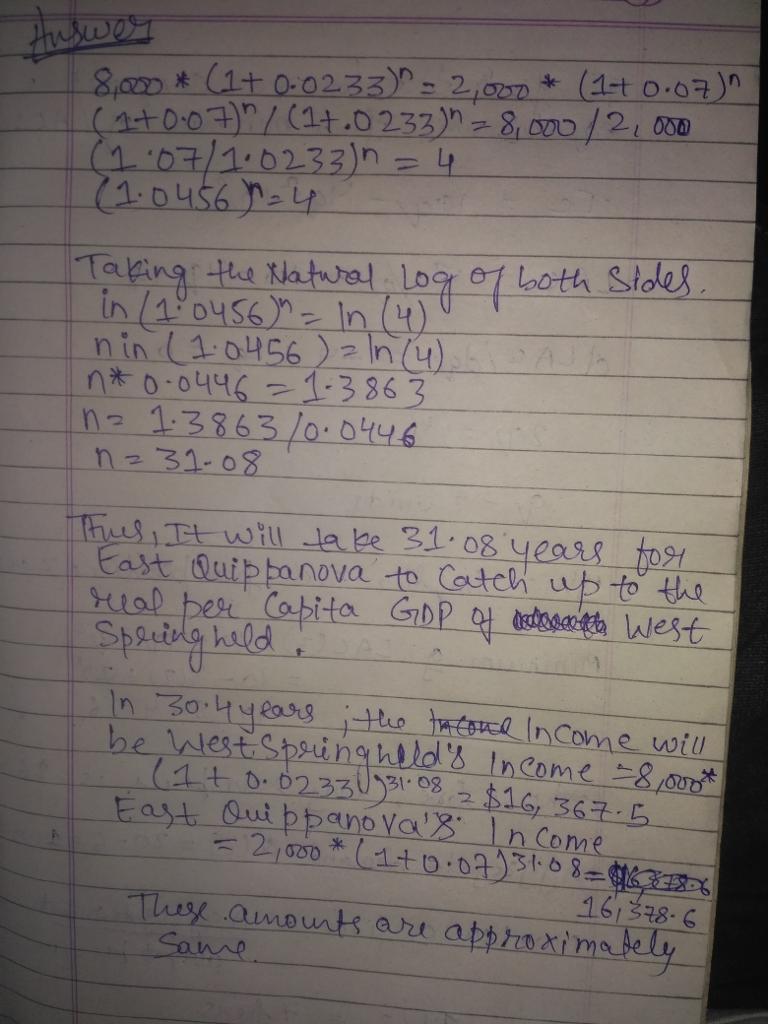 Answer
8,000 * (1+ 0.0233)ⁿ = 2,000 * (1+ 0.07)ⁿ
(1+0.07)ⁿ / (1+.0233)ⁿ = 8,000 / 2,000
(1.07/1.0233)ⁿ = 4
(1.0456)ⁿ=4
Taking the Natural Log of both Sides.
in (1.0456)ⁿ = ln (4)
n in (1.0456) = ln(4)
n* 0.0446 = 1.3863
n= 1.3863/0.0446
n = 31.08
Thus, It will take 31.08 years for
East Quippanova to Catch up to the
real per Capita GDP of West
Springheld.
In 30.4 years ; the Income Income will
be West Springheld's Income =8,000*
(1+ 0.0233)³¹·⁰⁸ = $16,367.5
East Quippanova's Income
= 2,000 * (1+0.07)³¹·⁰⁸ = $16,378.6
16,378.6
These amounts are approximately
Same.